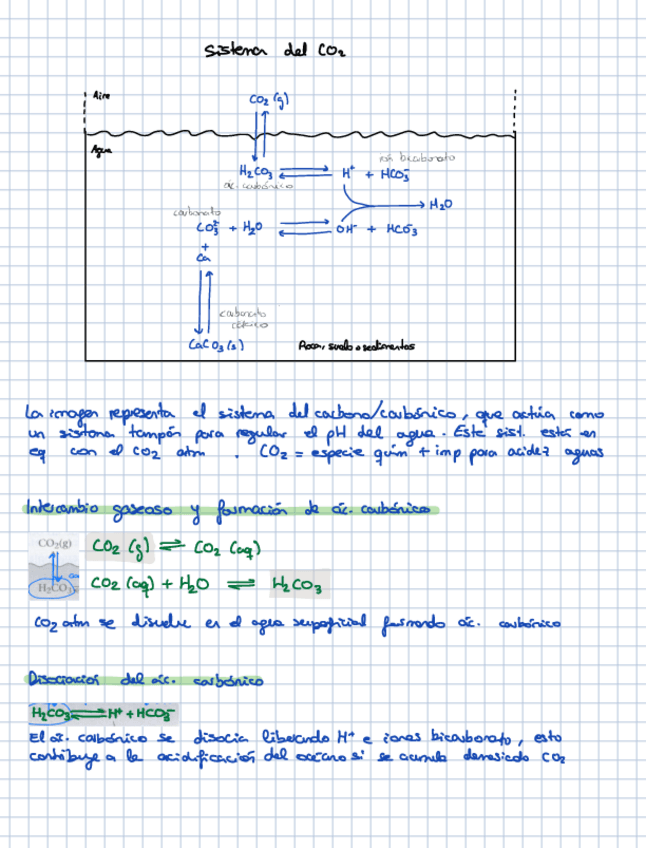 Sistema del CO₂
Aire
CO₂ (g)
Agua
ion bicarbonato
H₂CO₃ ⇌ H⁺ + HCO₃⁻
ác. carbónico
→ H₂O
carbonato
CO₃²⁻ + H₂O ⇌ OH⁻ + HCO₃⁻
+
Ca
carbonato
cálcico
CaCO₃ (s)
Roca, suelo o sedimentos
La imagen representa el sistema del carbono/carbónico, que actúa como
un sistema tampón para regular el pH del agua. Este sist. está en
eq con el CO₂ atm . CO₂ = especie quím + imp para acidez aguas
Intercambio gaseoso y formación de ác. carbónico
CO₂(g)
CO₂ (g) ⇌ CO₂ (aq)
H₂CO₃
CO₂ (aq) + H₂O ⇌ H₂CO₃
CO₂ atm se disuelve en el agua superficial formando ác. carbónico
Disociación del ác. carbónico
H₂CO₃ ⇌ H⁺ + HCO₃⁻
El ác. carbónico se disocia liberando H⁺ e iones bicarbonato, esto
contribuye a la acidificación del océano si se acumula demasiado CO₂